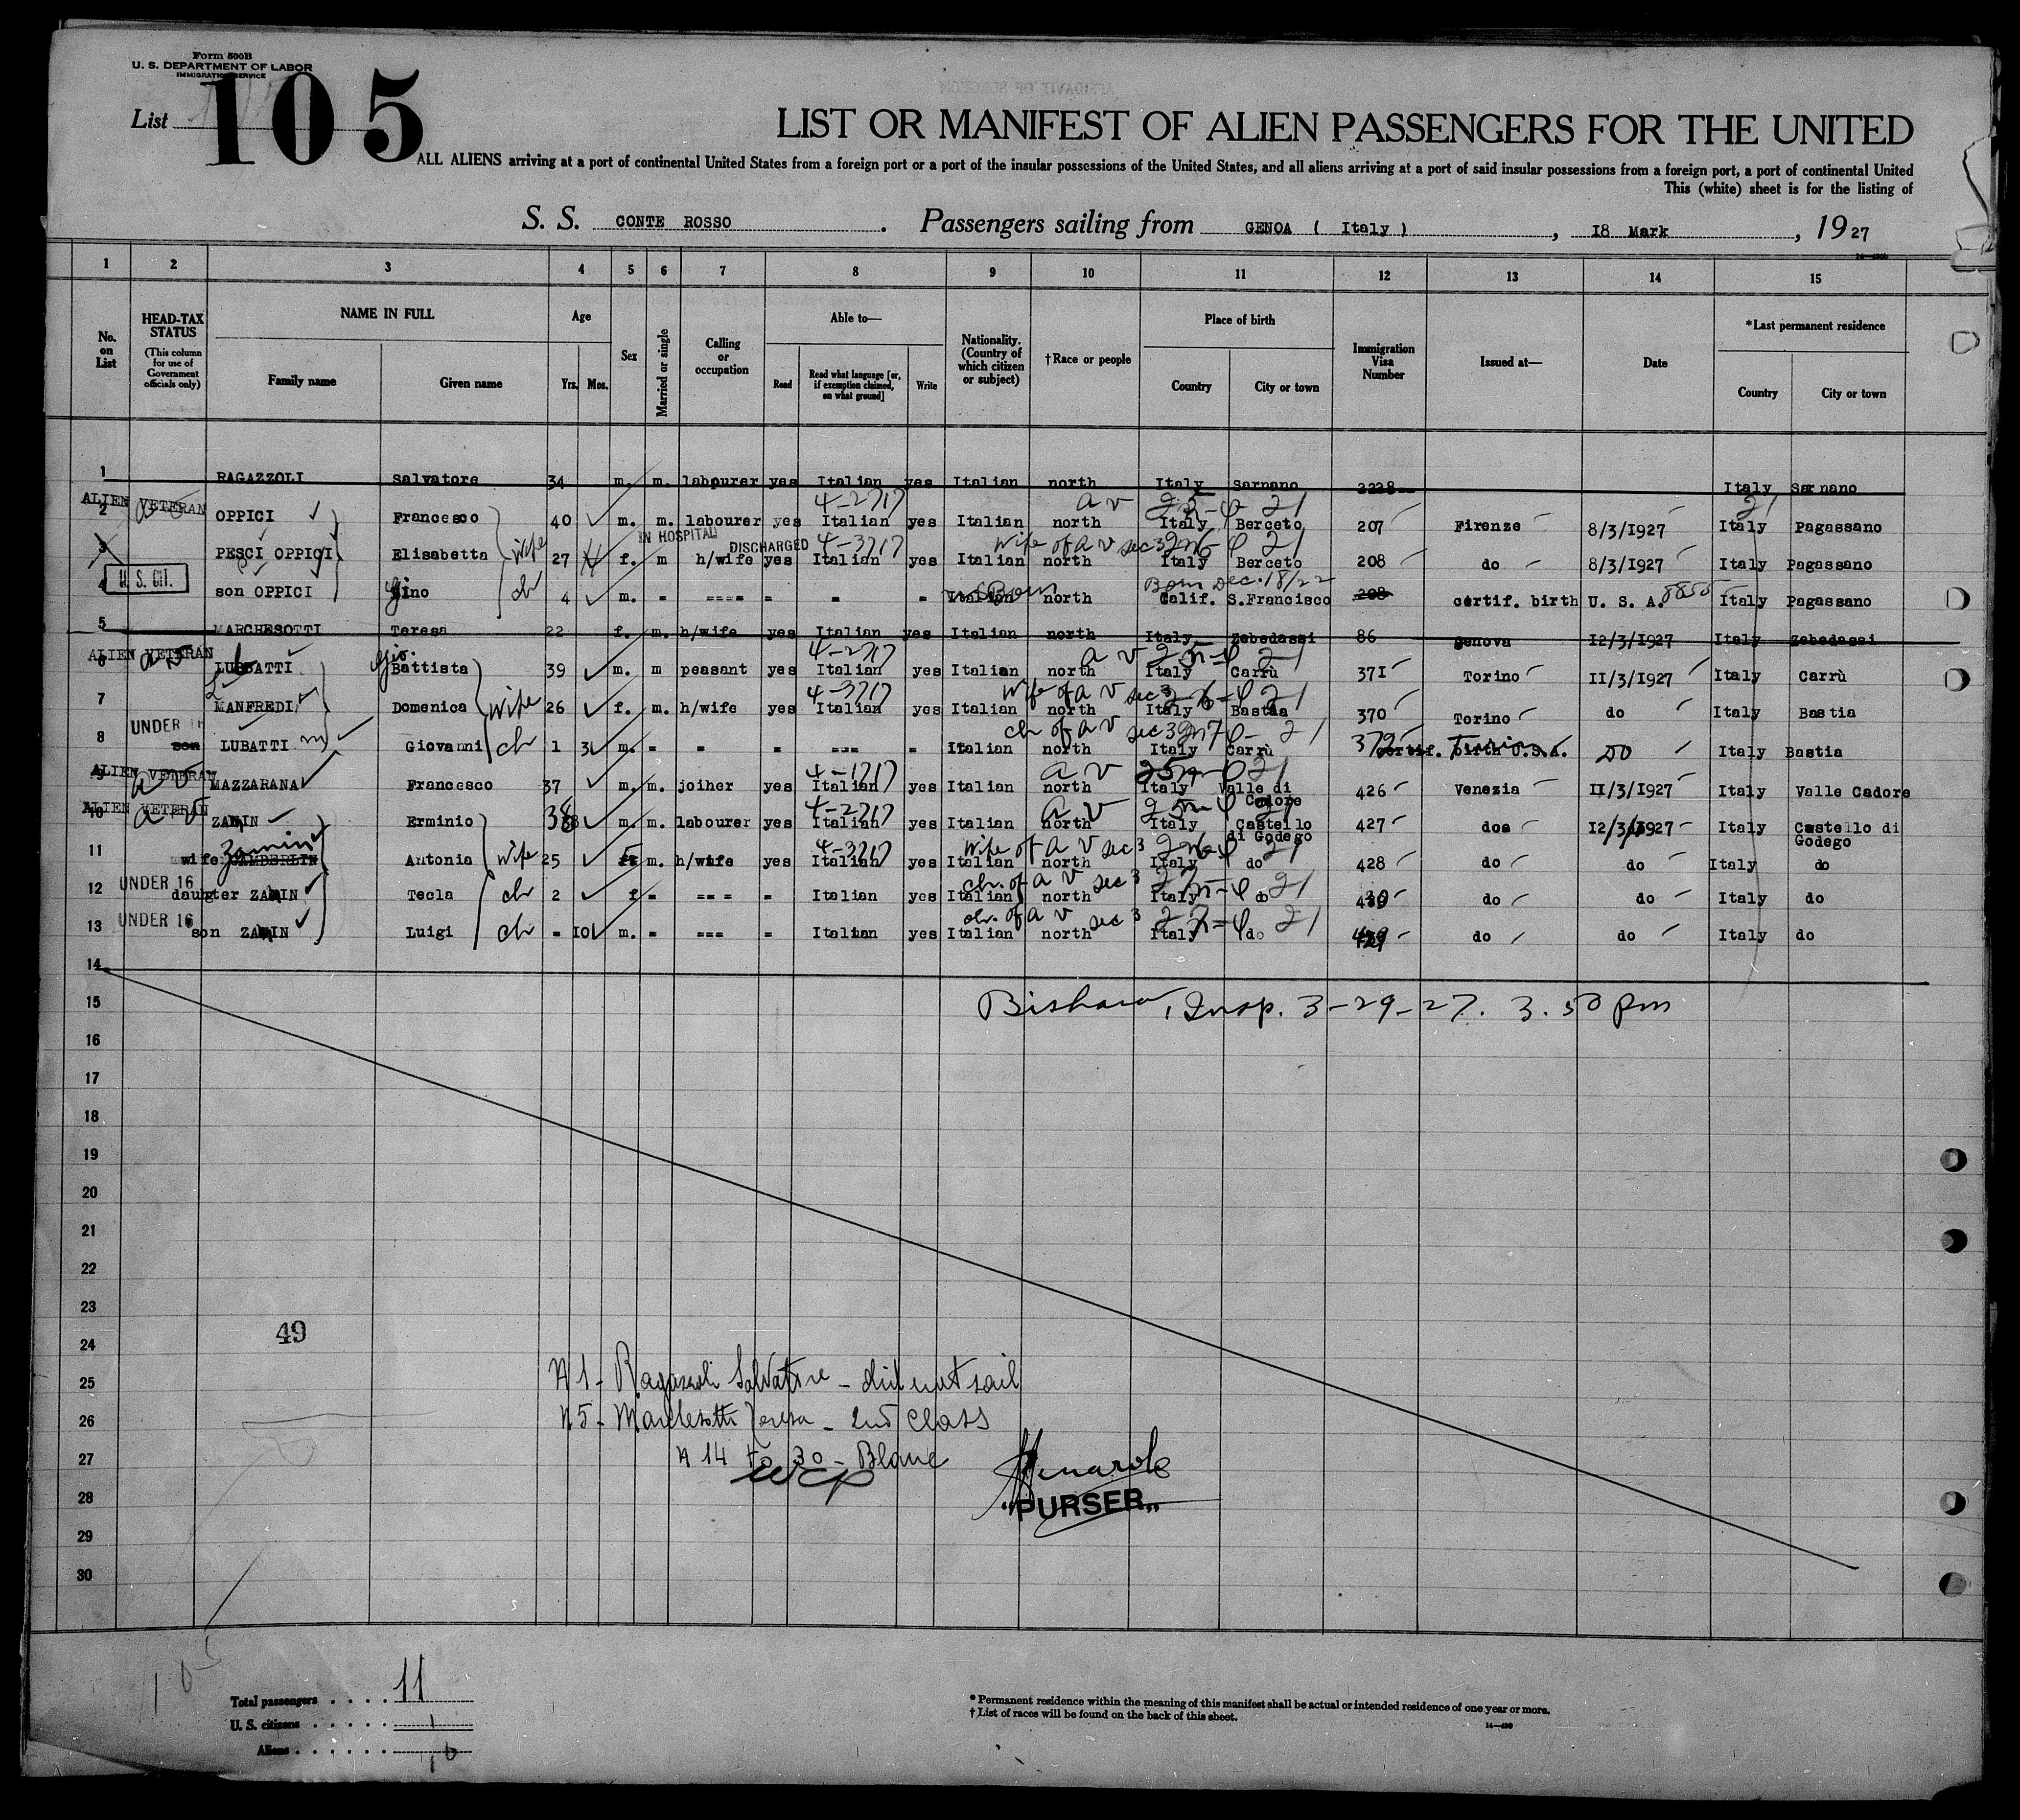 Form 500B
U. S. DEPARTMENT OF LABOR
IMMIGRATION SERVICE
List 105
LIST OR MANIFEST OF ALIEN PASSENGERS FOR THE UNITED
ALL ALIENS arriving at a port of continental United States from a foreign port or a port of the insular possessions of the United States, and all aliens arriving at a port of said insular possessions from a foreign port, a port of continental United
This (white) sheet is for the listing of
S. S. CONTE ROSSO . Passengers sailing from GENOA ( Italy ) , 18 Mark , 1927
1 2 3 4 5 6 7 8 9 10 11 12 13 14 15
No. on List
HEAD-TAX STATUS
(This column for use of Government officials only)
NAME IN FULL
Family name Given name
Age
Yrs. Mos.
Sex
Married or single
Calling or occupation
Able to—
Read
Read what language [or, if exemption claimed, on what ground]
Write
Nationality. (Country of which citizen or subject)
†Race or people
Place of birth
Country City or town
Immigration Visa Number
Issued at—
Date
*Last permanent residence
Country City or town
1 RAGAZZOLI Salvatore 34 m. m. labourer yes Italian yes Italian north Italy Sarnano 2228 Italy Sarnano
ALIEN VETERAN 4-2717 a v 21
2 OPPICI Francesco 40 m. m. labourer yes Italian yes Italian north Italy Berceto 207 Firenze 8/3/1927 Italy Pagassano
IN HOSPITAL DISCHARGED 4-3717 Wife of a v sec 3 21
3 PESCI OPPICI Elisabetta Wife 27 f. m h/wife yes Italian yes Italian north Italy Berceto 208 do 8/3/1927 Italy Pagassano
U. S. CIT. US Born Born Dec. 18/22
4 son OPPICI Gino ch 4 m. - ---- - - - Italian north Calif. S.Francisco 208 certif. birth U. S. A. Italy Pagassano
5 MARCHESOTTI Teresa 22 f. m. h/wife yes Italian yes Italian north Italy Zebedassi 86 Genova 12/3/1927 Italy Zebedassi
ALIEN VETERAN a v Gio. 4-2717 a v 21
6 LUBATTI Battista 39 m. m peasant yes Italian yes Italian north Italy Carrù 371 Torino 11/3/1927 Italy Carrù
4-3717 Wife of a v sec 3 21
7 MANFREDI Domenica Wife 26 f. m. h/wife yes Italian yes Italian north Italy Bastia 370 Torino do Italy Bastia
UNDER 16 ch of a v sec 3 21
8 son LUBATTI Giovanni ch 1 3 m. - - - --- - Italian north Italy Carrù 379 certif. birth U.S.A. Do Italy Bastia
ALIEN VETERAN a v 4-1717 a v 21
9 MAZZARANA Francesco 37 m. m. joiher yes Italian yes Italian north Italy Valle di Cadore 426 Venezia 11/3/1927 Italy Valle Cadore
ALIEN VETERAN a v 4-2717 a v 21
10 ZANIN Erminio 38 m. m. labourer yes Italian yes Italian north Italy Castello di Godego 427 doe 12/3/1927 Italy Castello di Godego
Zanin 4-3717 Wife of a v sec 3 21
11 wife ZAMBERLIN Antonia Wife 25 f m. h/wife yes Italian yes Italian north Italy do 428 do do Italy do
UNDER 16 ch. of a v sec 3 21
12 daugter ZANIN Tecla ch 2 f - --- - Italian yes Italian north Italy do do do Italy do
UNDER 16 ch. of a v sec 3 21
13 son ZANIN Luigi ch - 10 m. - --- - Italian yes Italian north Italy do do do Italy do
14
15 Insp. 3-29-27. 3.50 pm
16
17
18
19
20
21
22
23
49
24
25 N 1 - Ragazzoli Salvatore - did not sail
26 N 5 - Marchesotti Teresa - 2nd class
27 N 14 to 30 - Blanc
28 "PURSER„
29
30
105
Total passengers . . . . 11
U. S. citizens . . . . . 1
Aliens . . . . . . 10
* Permanent residence within the meaning of this manifest shall be actual or intended residence of one year or more.
† List of races will be found on the back of this sheet.